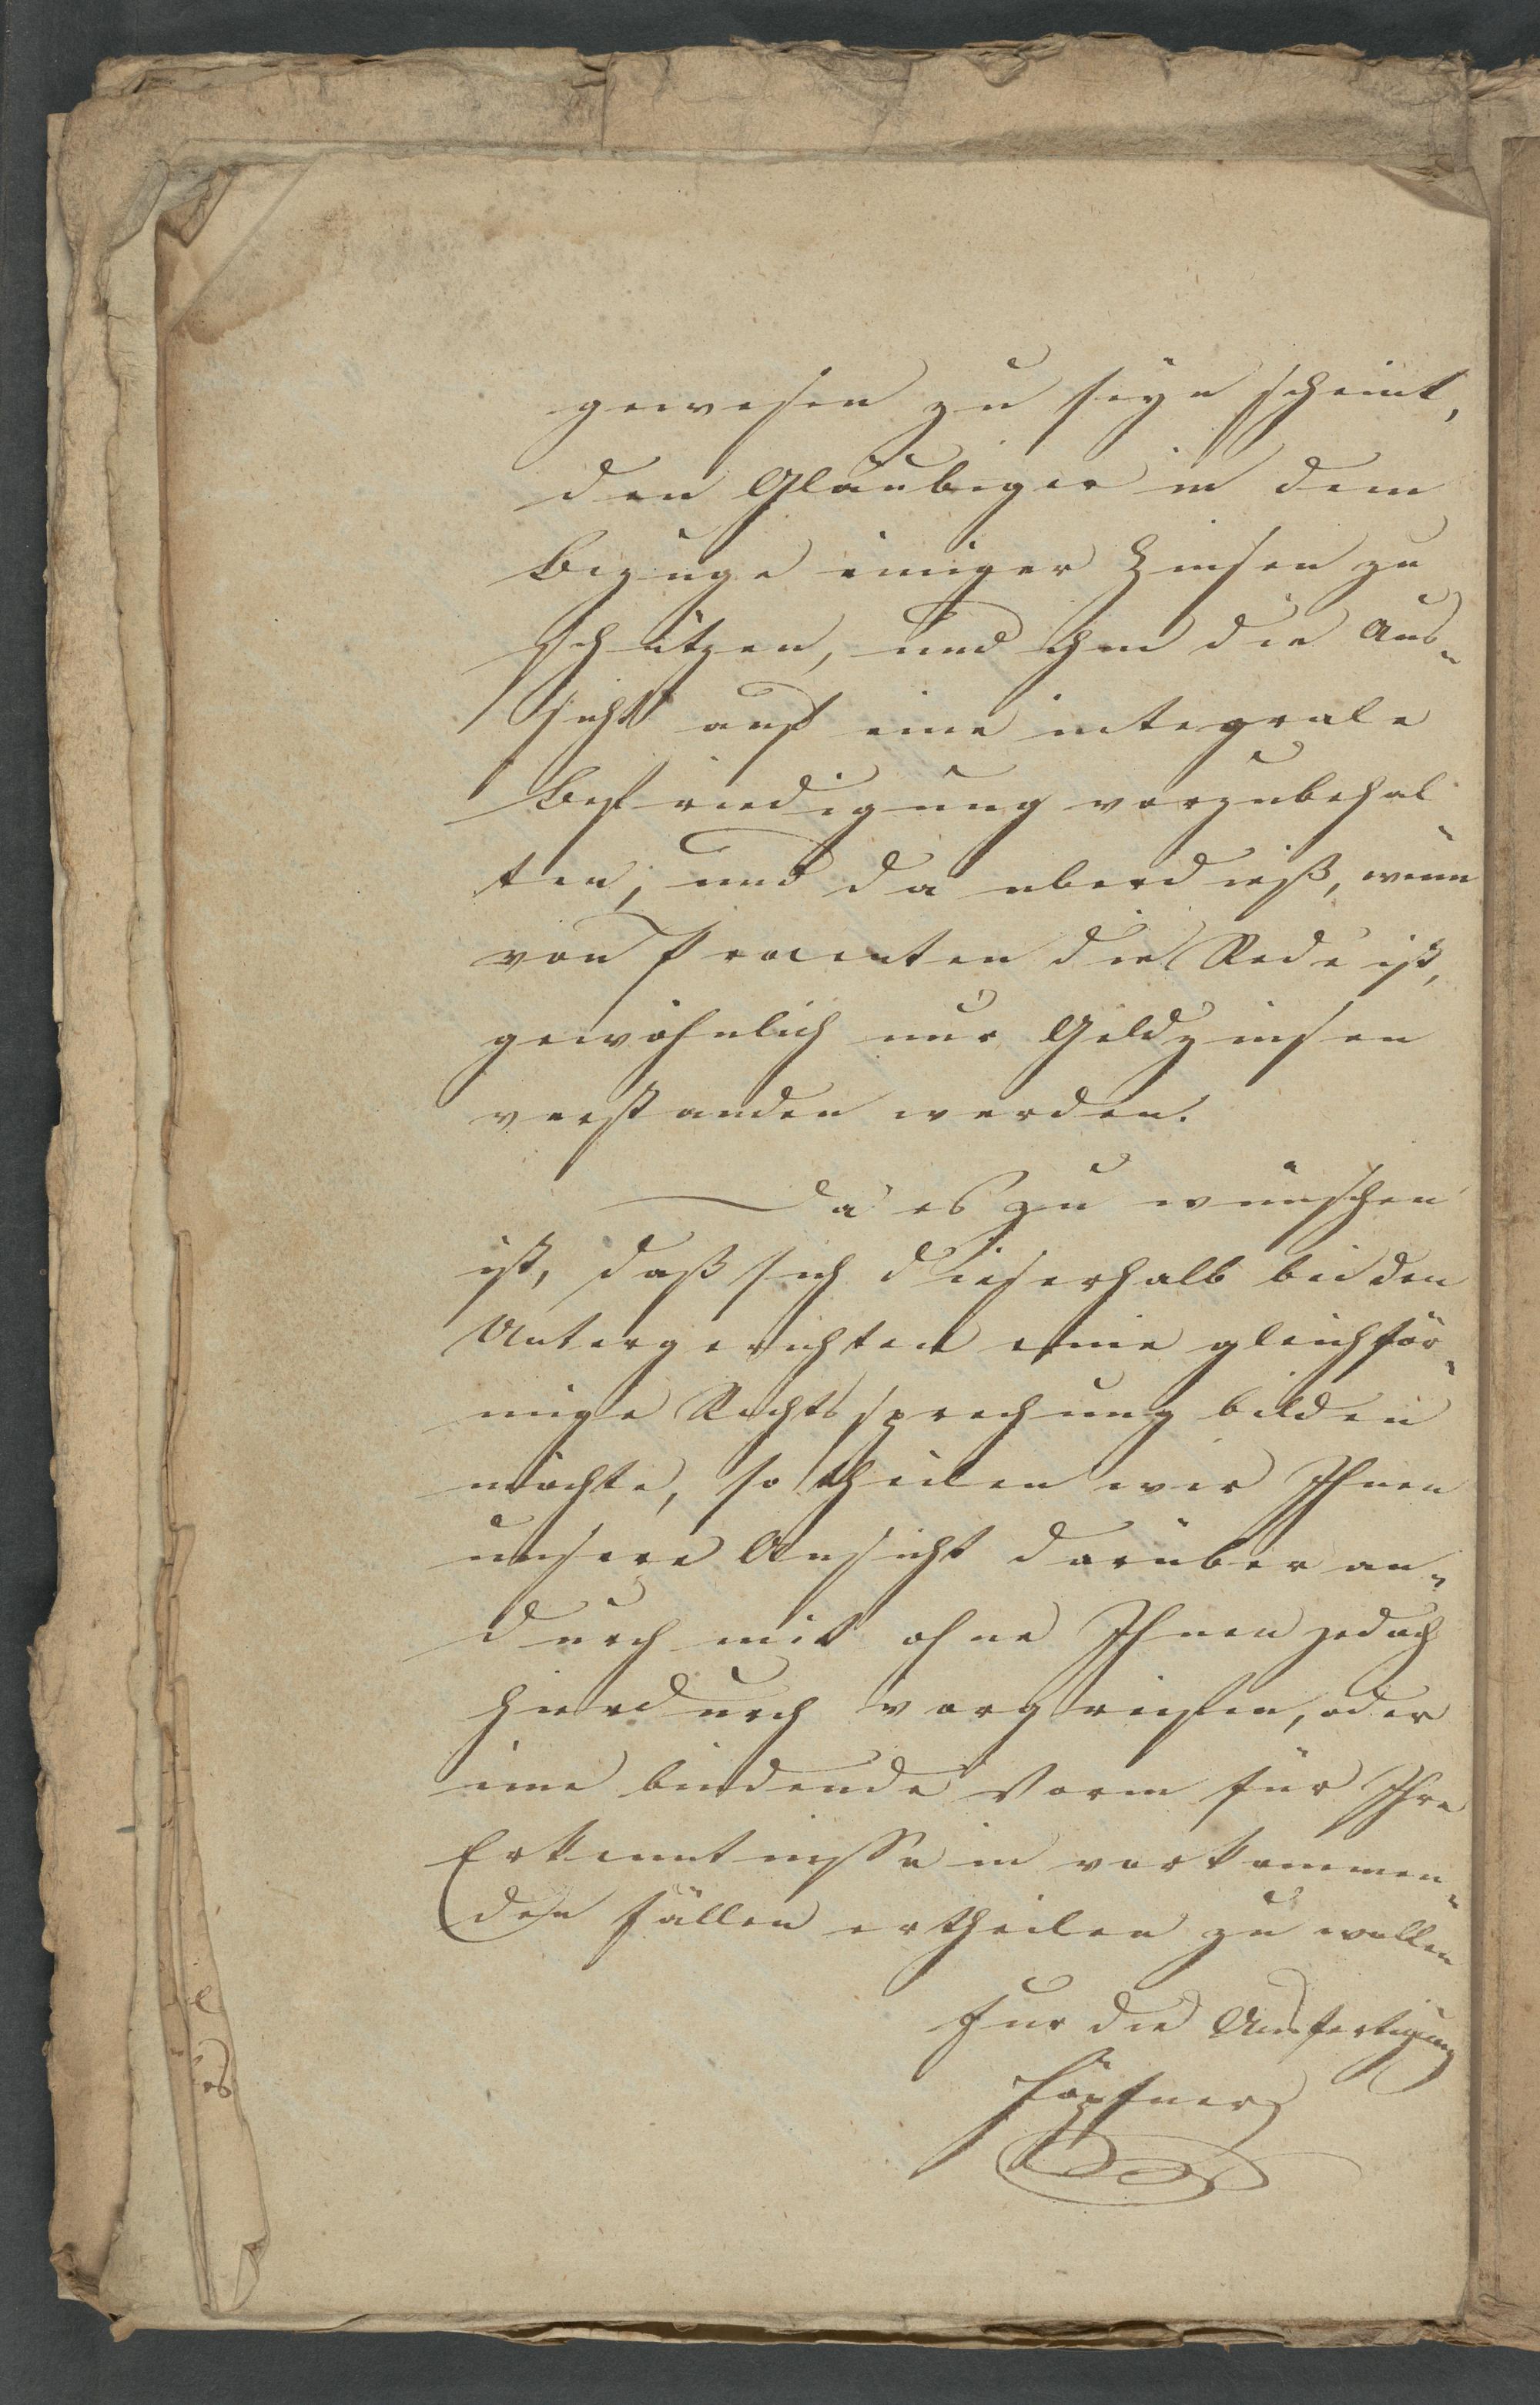 gewesen zu seyn scheint,
den Gläubiger in dem
Bezuge einiger Zinsen zu
schützen, und ihm die Aus-
sicht auf eine integrale
Befriedigung vorzubehal-
ten, und da überdieß, wenn
von Procenten die Rede ist,
gewöhnlich nur Geldzinsen
verstanden werden.
Da es zu wünschen
ist, daß sich dieserhalb bei den
Untergerichten eine gleichför-
mige Rechtssprechung bilden
möchte, so theilen wir Ihnen
unsere Ansicht darüber an-
durch mit ohne Ihnen jedoch
hierdurch vorgreifen, oder
eine bindende Norm für Ihre
Erkenntnisse in vorkommen-
den Fällen ertheilen zu wollen
Für die Ausfertigung
Höpfner